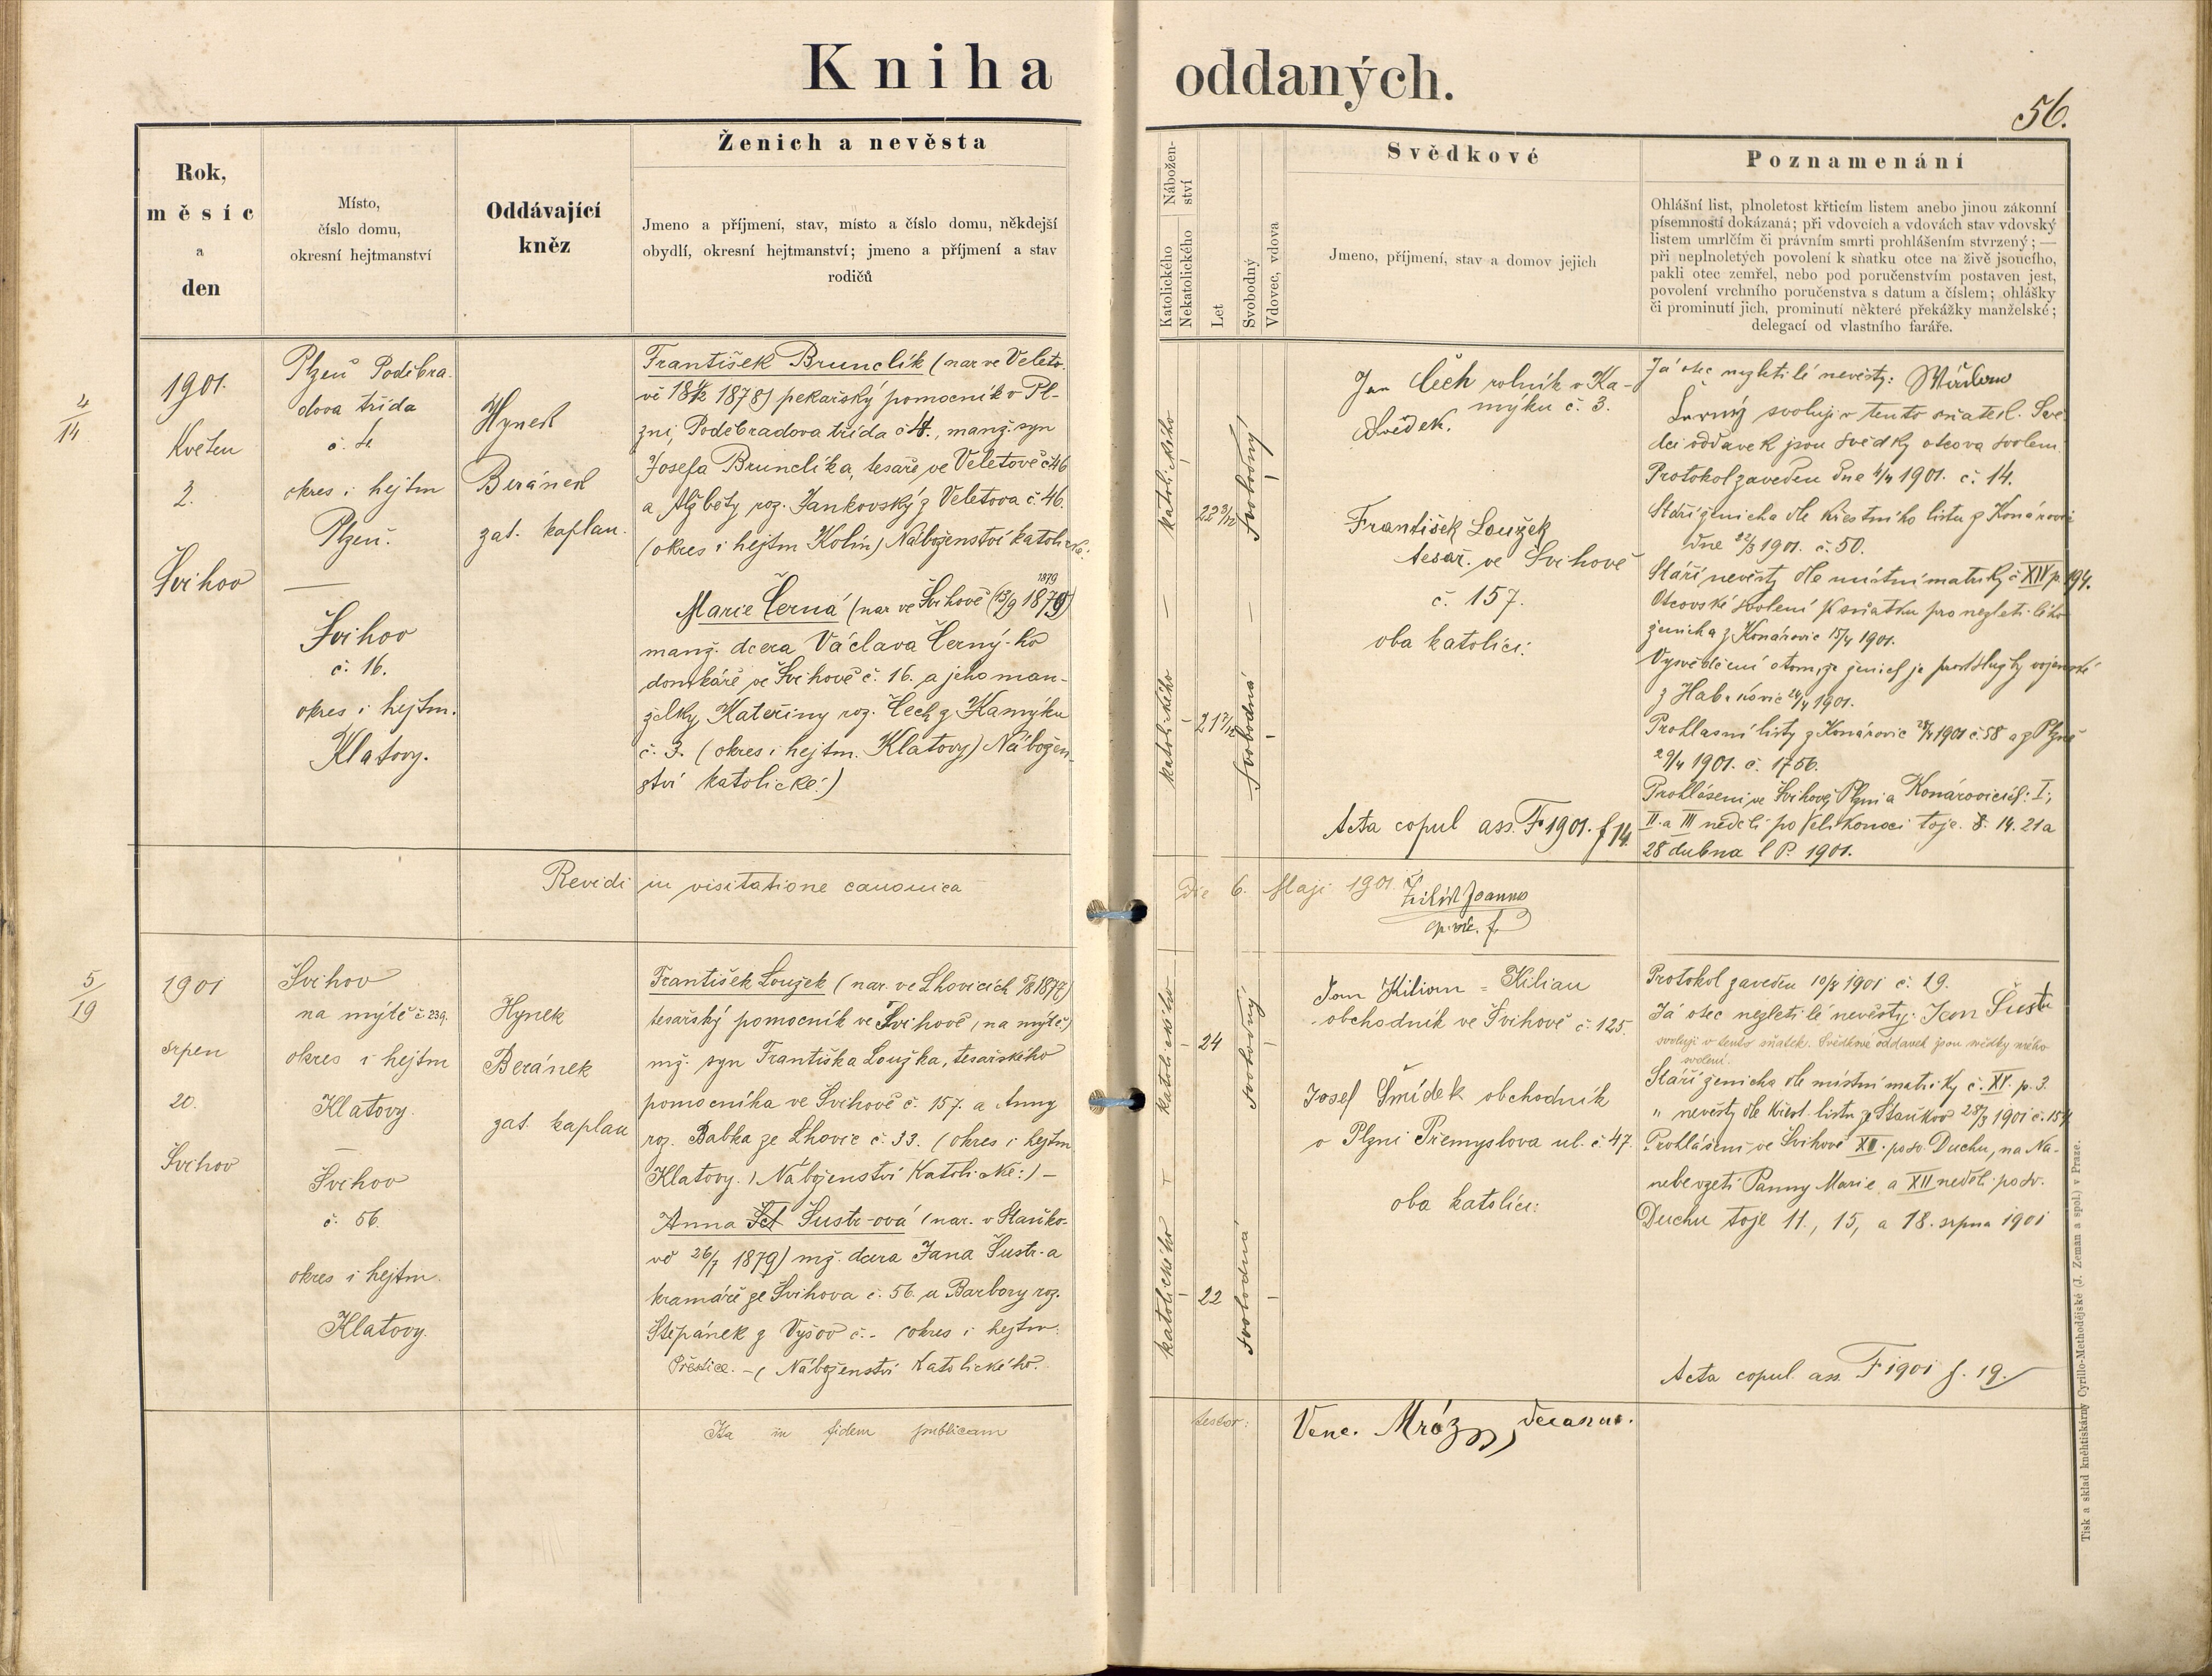 Kniha oddaných.
56.
Rok,
měsíc
a
den
Místo,
číslo domu,
okresní hejtmanství
Oddávající
kněz
Ženich a nevěsta
Jmeno a příjmení, stav, místo a číslo domu, někdejší
obydlí, okresní hejtmanství; jmeno a příjmení a stav
rodičů
Nábožen-
ství
Katolického
Nekatolického
Let
Svobodný
Vdovec, vdova
Svědkové
Jmeno, příjmení, stav a domov jejich
Poznamenání
Ohlášní list, plnoletost křticím listem anebo jinou zákonní
písemností dokázaná; při vdovcích a vdovách stav vdovský
listem umrlčím či právním smrti prohlášením stvrzený; —
při neplnoletých povolení k sňatku otce na živě jsoucího,
pakli otec zemřel, nebo pod poručenstvím postaven jest,
povolení vrchního poručenstva s datum a číslem; ohlášky
či prominutí jich, prominutí některé překážky manželské;
delegací od vlastního faráře.
4/14
1901.
Květen
2.
Švihov
Plzeň Poděbra-
dova třída
č. 4
okres i hejtm
Plzeň.
—
Švihov
č. 16.
okres i hejtm.
Klatovy.
Hynek
Beránek
zat. kaplan.
František Brunclík (nar ve Veleto-
vě 18 1878) pekařský pomocník v Pl-
zni, Poděbradova třída č 4., manž. syn
Josefa Brunclíka, tesaře ve Veletově č 46
a Alžběty roz. Jankovský z Veletova č. 46.
(okres i hejtm Kolín) Náboženství katolické:
1879
Marie Černá (nar ve Švihově (13/9 1879)
manž. dcera Václava Černý-ho
domkáře ve Švihově č. 16. a jeho man-
želky Kateřiny roz. Čech z Kamýku
č. 3. (okres i hejtm. Klatovy) Nábožen-
ství katolické:)
katolického
22 3/12
svobodný
katolického
21 7/12
svobodná
Jan Čech rolník v Ka-
mýku č. 3.
svědek.
František Loužek
tesař. ve Švihově
č. 157.
oba katolíci:
Acta copul ass. F 1901. f 14.
Já otec nezletilé nevěsty:
Černý svoluji v tento sňatek. Svě-
dci oddavek jsou svědky otcova svolení.
Protokol zaveden dne 4/4 1901. č. 14.
Stáří ženicha dle křestního listu z Konárovic
dne 22/3 1901. č. 50.
Stáří nevěsty dle místní matriky č XIV p. 194.
Otcovské svolení k sňatku pro nezletilého
ženicha z Konárovic 15/4 1901.
Vysvědčení o tom, že ženich je prost služby vojenské
z 24/4 1901.
Prohlasní listy z Konárovic 28/4 1901 č. 58 a z Plzně
29/4 1901. č. 1756.
Prohlášeni ve Švihově, Plzni a Konárovicích: I,
II. a III neděli po Velikonoci toje. 14. 21 a
28 dubna l P. 1901.
Revidi in visitatione canonica
Die 6. Maji 1901.
5/19
1901
srpen
20.
Švihov
Švihov
na mýtě č 239.
okres i hejtm
Klatovy.
—
Švihov
č. 56.
okres i hejtm.
Klatovy.
Hynek
Beránek
zat. kaplan
František Loužek (nar. ve Lhovicích 1877)
tesařský pomocník ve Švihově, (na mýtě)
mž. syn Františka Loužka, tesařského
pomocníka ve Švihově č. 157. a Anny
roz. Babka ze Lhovic č. 33. (okres i hejtm
Klatovy.) Náboženství katolické:) –
Anna Šustr-ová (nar. v Staňko-
vě 26/7 1879) mž. dcera Jana Šustr-a
kramáře ze Švihova č. 56. a Barbory roz.
Štěpánek z Vyšov č. - (okres i hejtm:
Přeštice. – ( Náboženství katolického.
katolického
24
svobodný
katolického
22
svobodná
Jan Kilian = Kilian
obchodník ve Švihově č. 125.
Josef Šmídek obchodník
v Plzni Přemyslova ul. č. 47.
oba katolíci:
Protokol zaveden 10/8 1901 č. 19.
Já otec nezletilé nevěsty: Jan Šustr
svoluji v tento sňatek. Svědkové oddavek jsou svědky mého
svolení.
Stáří ženicha dle místní matriky č. XV. p. 3.
" nevěsty dle křest. listu ze Staňkov 28/7 1901 č. 154
Prohlášeni ve Švihově XI. po sv. Duchu, na Na-
nebevzetí Panny Marie a XII neděli po sv.
Duchu toje 11., 15, a 18. srpna 1901
Acta copul. ass. F 1901 f. 19.
Ita in fidem publicam
testor:
Venc. Mráz, decanus.
Tisk a sklad kněhtiskárny Cyrillo-Methodějské (J. Zeman a spol.) v Praze.